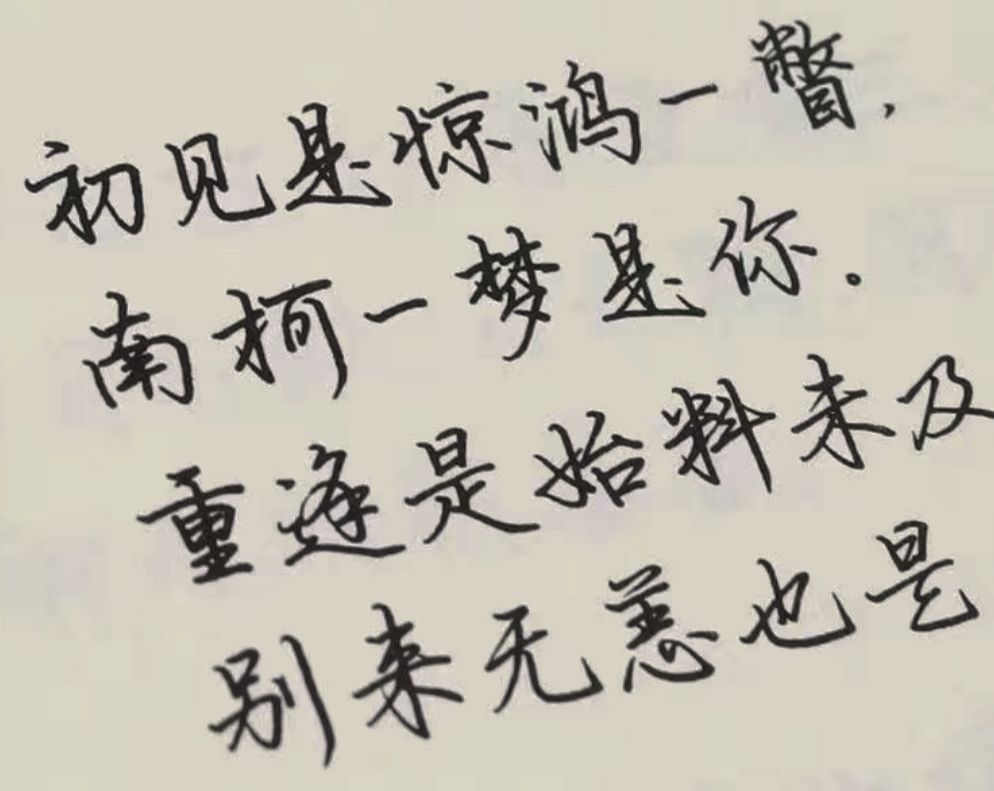 初见是惊鸿一瞥,
南柯一梦是你.
重逢是始料未及
别来无恙也是